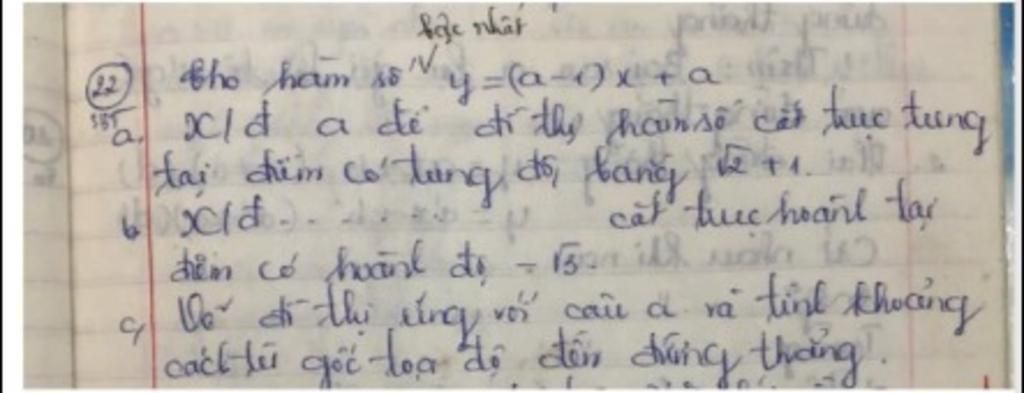 bậc nhất
22 Cho hàm số y = (a-1)x + a
a, X/đ a để đồ thị hàm số cắt trục tung
tại điểm có tung độ bằng √2 + 1.
b X/đ - - - - cắt trục hoành tại
điểm có hoành độ - √3.
c, Vẽ đồ thị ứng với câu a và tính khoảng
cách từ gốc toạ độ đến đường thẳng.